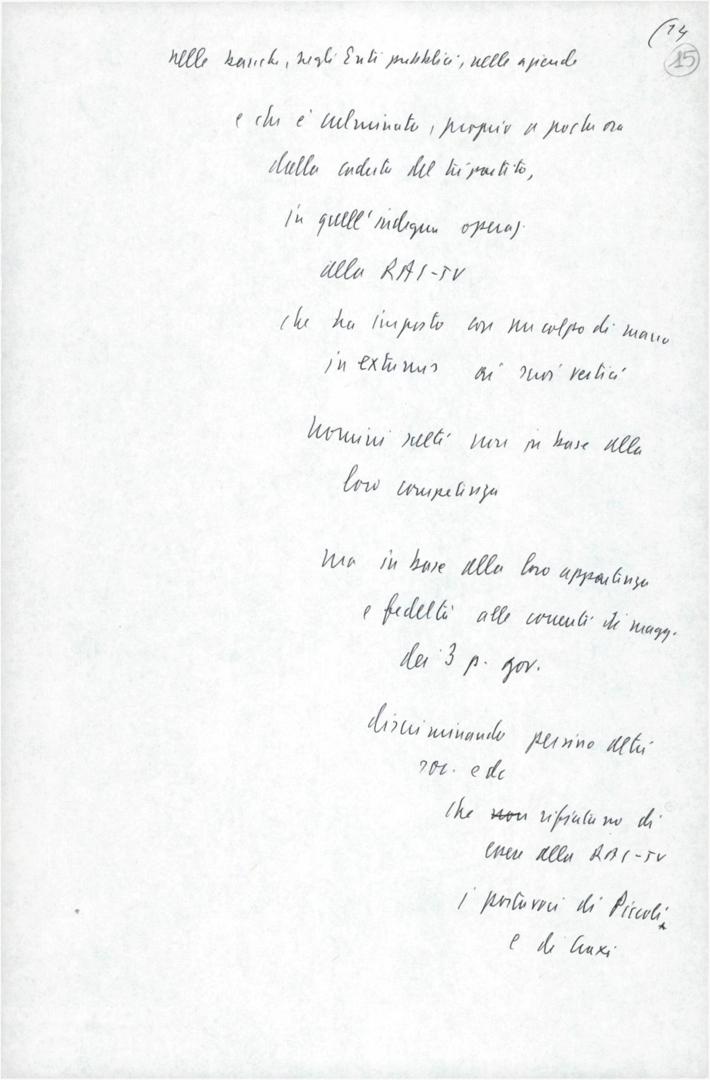 (14
15
nelle banche, negli Enti pubblici, nelle aziende
e che è culminata, proprio a poche ore
dalla caduta del tripartito,
in quell'indegna operaz.
alla RAI-TV
che ha imposto con un colpo di mano
in extremis ai suoi vertici
uomini scelti non in base alla
loro competenza
ma in base alla loro appartenenza
e fedeltà alle correnti di magg.
dei 3 p. gov.
discriminando persino altri
soc. e dc
che non rifiutano di
essere alla RAI-TV
i portavoci di Piccoli
e di Craxi